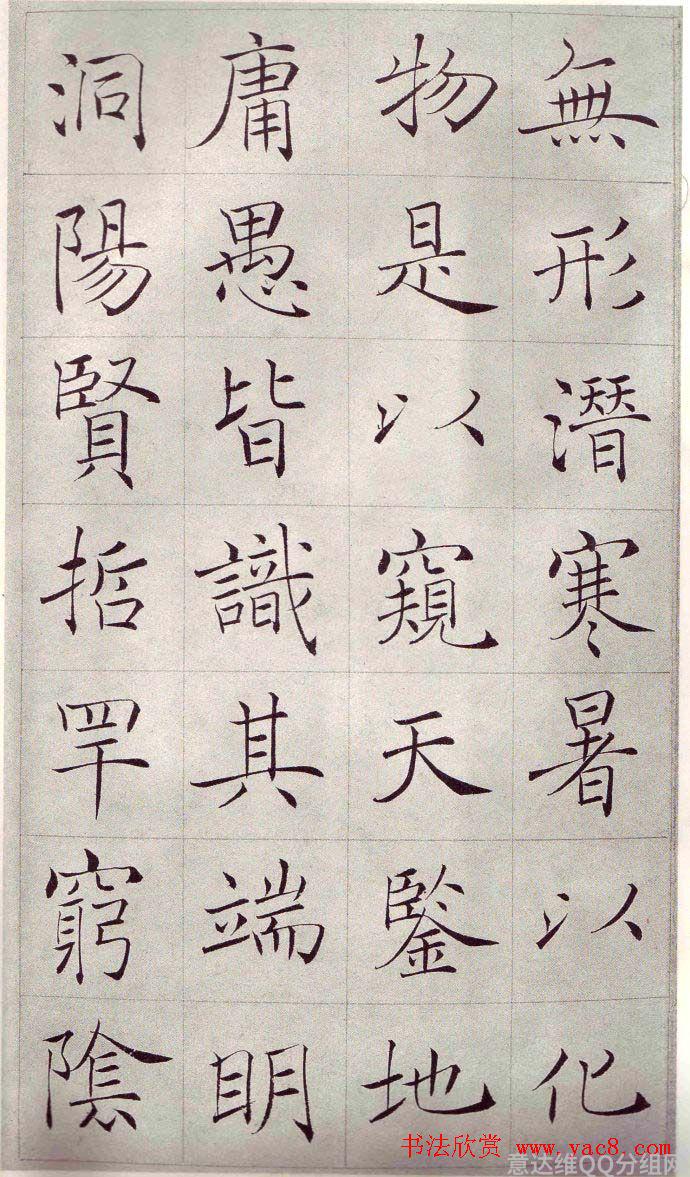 無形潛寒暑以化
物是以窺天鑒地
庸愚皆識其端明
洞陽賢哲罕窮陰
书法欣赏 www.yac8.com
意达维QQ分组网